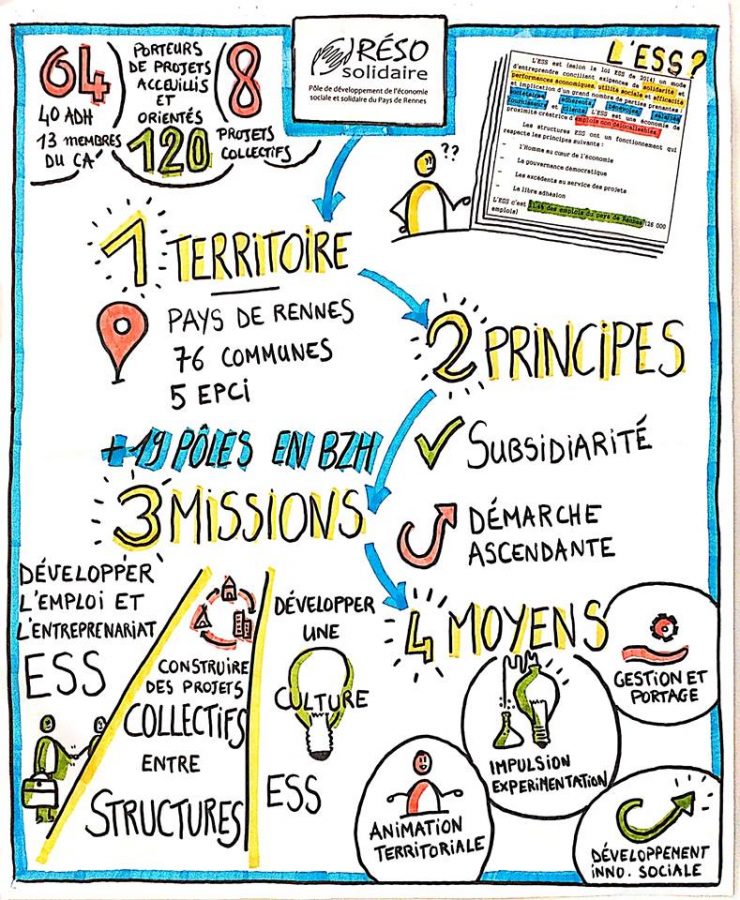 64
40 ADH
13 MEMBRES
DU CA
PORTEURS
DE PROJETS
ACCEUILLIS
ET
ORIENTÉS
120
8
PROJETS
COLLECTIFS
RÉSO
solidaire
Pôle de développement de l'économie
sociale et solidaire du Pays de Rennes
L'ESS?
L'ESS est (selon la loi ESS de 2014) un mode
d'entreprendre conciliant exigences de solidarité et
performances économiques, utilité sociale et efficacité
et implication d'un grand nombre de parties prenantes :
sociétaires, adhérents, bénévoles, salariés,
fournisseurs et clients. L'ESS est une économie de
proximité créatrice d'emplois non délocalisables.
Les structures ESS ont un fonctionnement qui
respecte les principes suivants :
- l'Homme au cœur de l'économie
- La gouvernance démocratique
- Les excédents au service des projets
- La libre adhésion
L'ESS c'est des emplois du pays de Rennes (26 000
emplois)
??
1 TERRITOIRE
PAYS DE RENNES
76 COMMUNES
5 EPCI
+ 19 PÔLES EN BZH
2 PRINCIPES
SUBSIDIARITÉ
DÉMARCHE
ASCENDANTE
3 MISSIONS
DÉVELOPPER
L'EMPLOI ET
L'ENTREPRENARIAT
ESS
CONSTRUIRE
DES PROJETS
COLLECTIFS
ENTRE
STRUCTURES
DÉVELOPPER
UNE
CULTURE
ESS
4 MOYENS
GESTION ET
PORTAGE
IMPULSION
EXPERIMENTATION
ANIMATION
TERRITORIALE
DÉVELOPPEMENT
INNO. SOCIALE